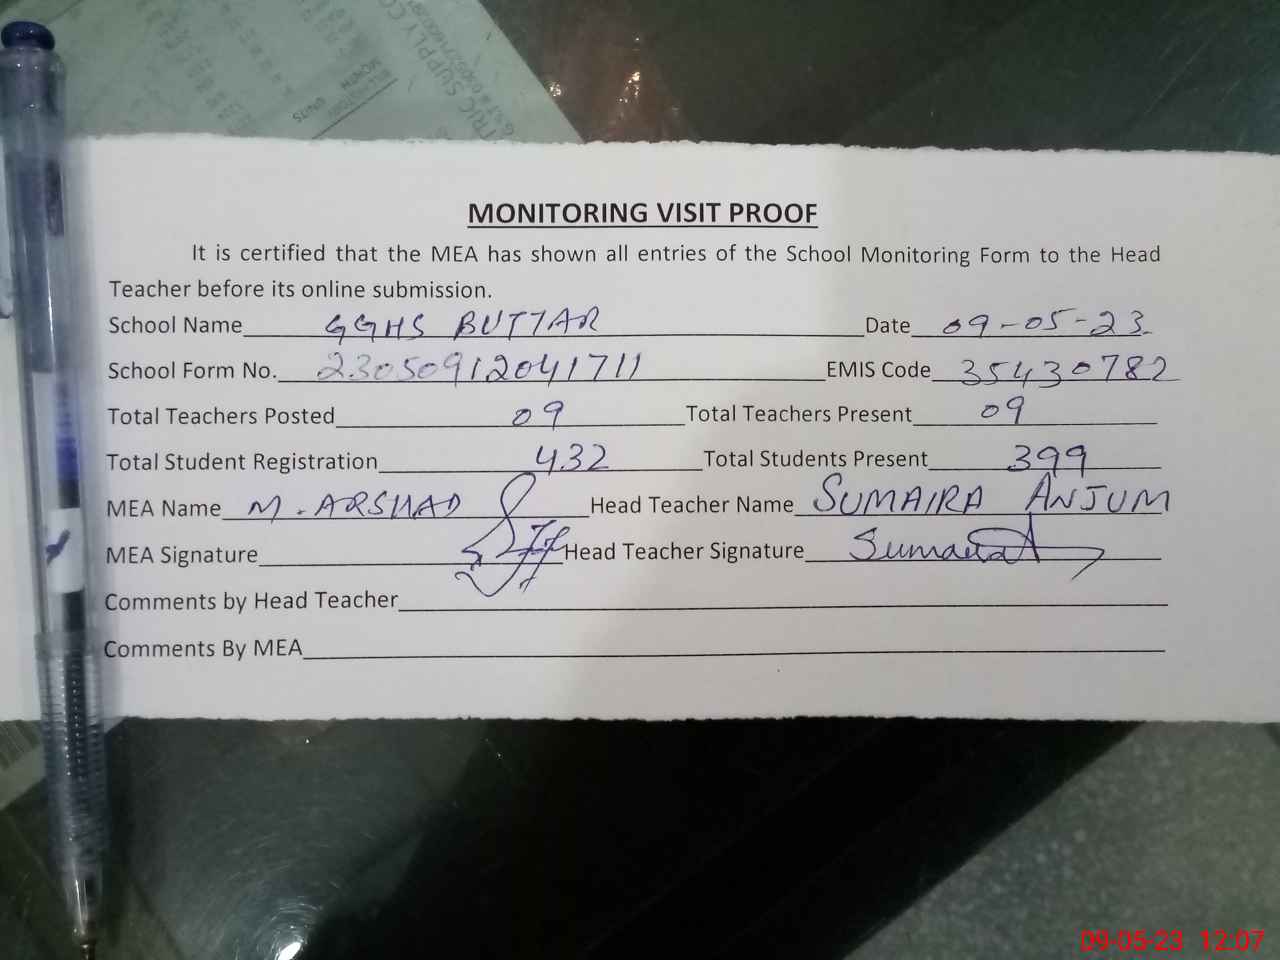 TRIC SUPPLY CO
MONTH
UNITS
MONITORING VISIT PROOF
It is certified that the MEA has shown all entries of the School Monitoring Form to the Head
Teacher before its online submission.
School Name GGHS BUTTAR Date 09-05-23
School Form No. 23050912041711 EMIS Code 35430782
Total Teachers Posted 09 Total Teachers Present 09
Total Student Registration 432 Total Students Present 399
MEA Name M. ARSHAD Head Teacher Name SUMAIRA ANJUM
MEA Signature Head Teacher Signature Sumaira
Comments by Head Teacher
Comments By MEA
09-05-23 12:07